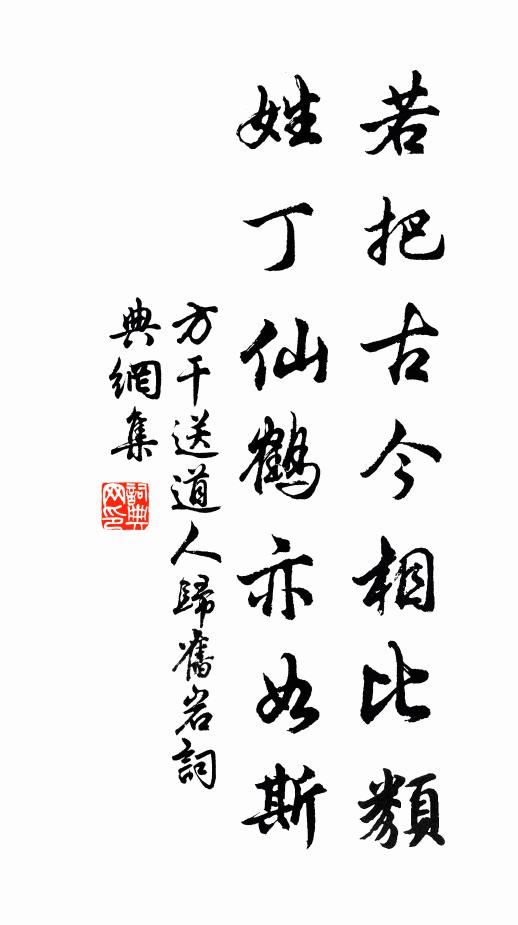 若把古今相比類
姓丁仙鶴亦如斯
方干送道人歸舊岩詞
典網集
詞典
网印